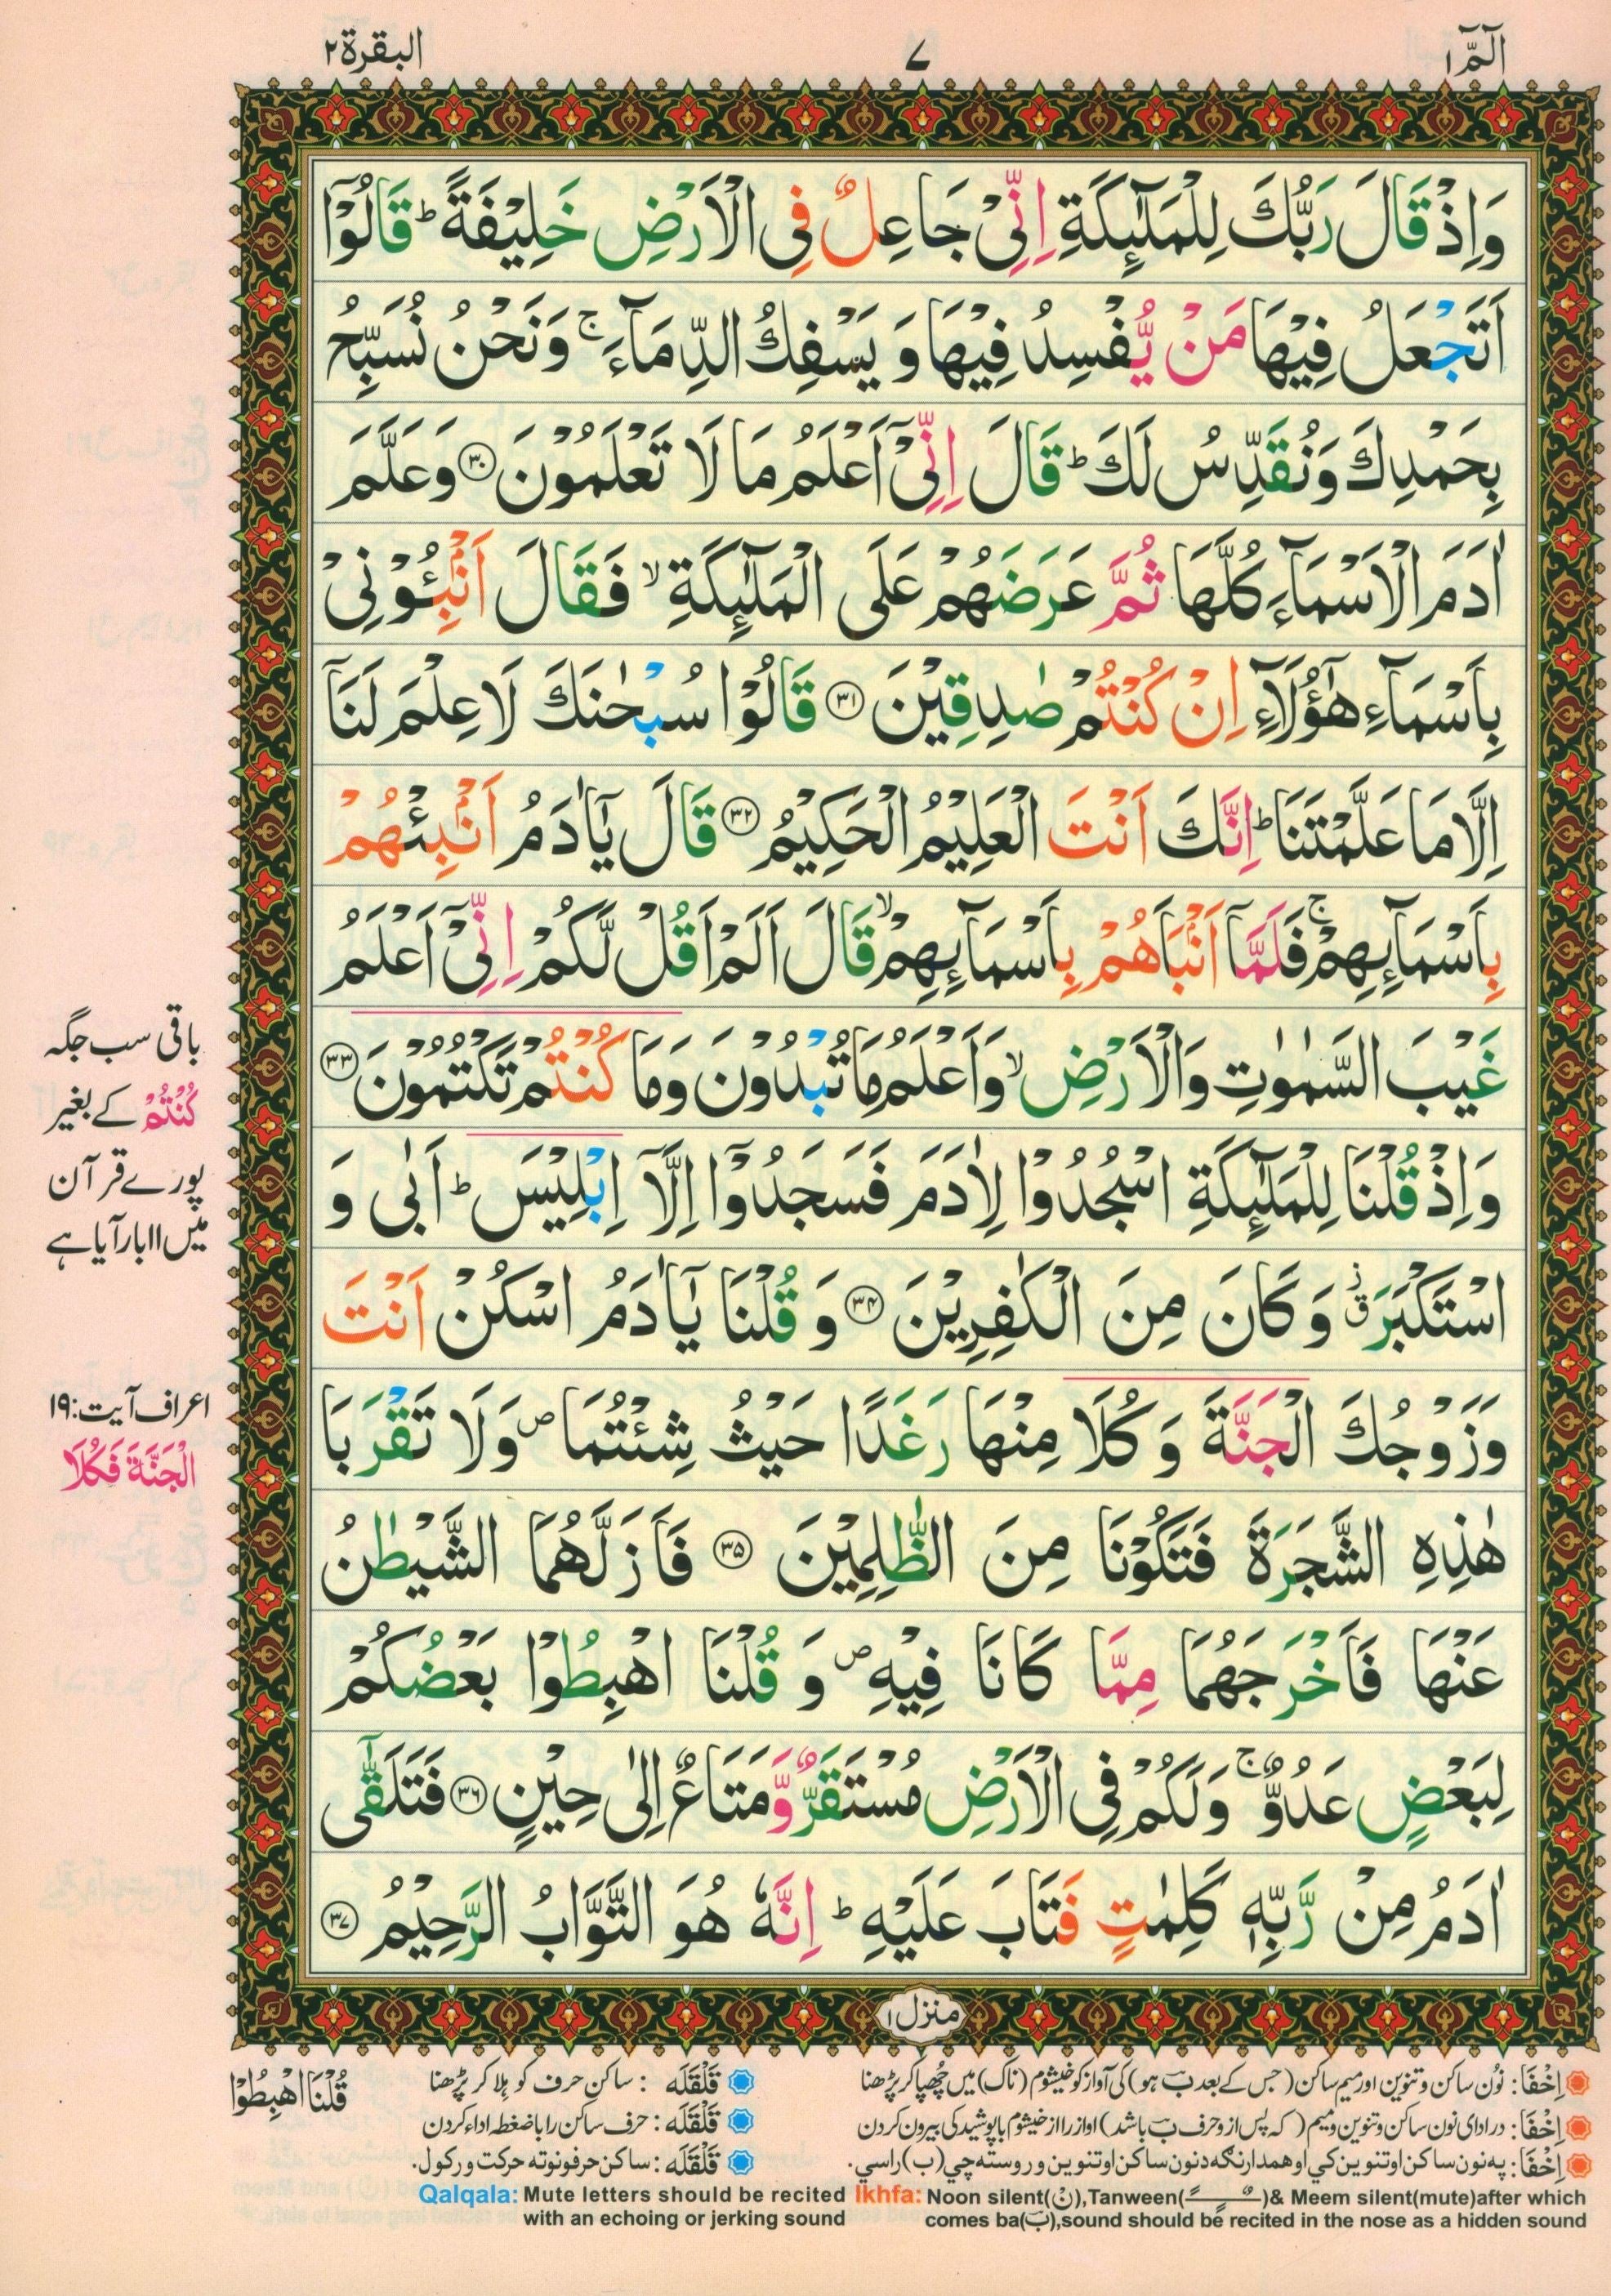 الٓمّٓ ١
٧
البقرة ٢
وَاِذْ قَالَ رَبُّكَ لِلْمَلٰٓئِكَةِ اِنِّیْ جَاعِلٌ فِی الْاَرْضِ خَلِیْفَةً ؕ قَالُوْۤا
اَتَجْعَلُ فِیْهَا مَنْ یُّفْسِدُ فِیْهَا وَ یَسْفِكُ الدِّمَآءَ ۚ وَنَحْنُ نُسَبِّحُ
بِحَمْدِكَ وَنُقَدِّسُ لَكَ ؕ قَالَ اِنِّیْۤ اَعْلَمُ مَا لَا تَعْلَمُوْنَ ﴿۳۰﴾ وَعَلَّمَ
اٰدَمَ الْاَسْمَآءَ كُلَّهَا ثُمَّ عَرَضَهُمْ عَلَی الْمَلٰٓئِكَةِ ۙ فَقَالَ اَنْۢبِـُٔوْنِیْ
بِاَسْمَآءِ هٰۤؤُلَآءِ اِنْ كُنْتُمْ صٰدِقِیْنَ ﴿۳۱﴾ قَالُوْا سُبْحٰنَكَ لَا عِلْمَ لَنَاۤ
اِلَّا مَا عَلَّمْتَنَا ؕ اِنَّكَ اَنْتَ الْعَلِیْمُ الْحَكِیْمُ ﴿۳۲﴾ قَالَ یٰۤاٰدَمُ اَنْۢبِئْهُمْ
بِاَسْمَآئِهِمْ ۚ فَلَمَّاۤ اَنْۢبَاَهُمْ بِاَسْمَآئِهِمْ ۙ قَالَ اَلَمْ اَقُلْ لَّكُمْ اِنِّیْۤ اَعْلَمُ
غَیْبَ السَّمٰوٰتِ وَالْاَرْضِ ۙ وَاَعْلَمُ مَا تُبْدُوْنَ وَمَا كُنْتُمْ تَكْتُمُوْنَ ﴿۳۳﴾
وَاِذْ قُلْنَا لِلْمَلٰٓئِكَةِ اسْجُدُوْا لِاٰدَمَ فَسَجَدُوْۤا اِلَّاۤ اِبْلِیْسَ ؕ اَبٰی وَ
اسْتَكْبَرَ ٘ۗ وَ كَانَ مِنَ الْكٰفِرِیْنَ ﴿۳۴﴾ وَ قُلْنَا یٰۤاٰدَمُ اسْكُنْ اَنْتَ
وَزَوْجُكَ الْجَنَّةَ وَ كُلَا مِنْهَا رَغَدًا حَیْثُ شِئْتُمَا ۪ وَلَا تَقْرَبَا
هٰذِهِ الشَّجَرَةَ فَتَكُوْنَا مِنَ الظّٰلِمِیْنَ ﴿۳۵﴾ فَاَزَلَّهُمَا الشَّیْطٰنُ
عَنْهَا فَاَخْرَجَهُمَا مِمَّا كَانَا فِیْهِ ۪ وَ قُلْنَا اهْبِطُوْا بَعْضُكُمْ
لِبَعْضٍ عَدُوٌّ ۚ وَلَكُمْ فِی الْاَرْضِ مُسْتَقَرٌّ وَّمَتَاعٌ اِلٰی حِیْنٍ ﴿۳۶﴾ فَتَلَقّٰۤی
اٰدَمُ مِنْ رَّبِّهٖ كَلِمٰتٍ فَتَابَ عَلَیْهِ ؕ اِنَّهٗ هُوَ التَّوَّابُ الرَّحِیْمُ ﴿۳۷﴾
باقی سب جگہ
كُنْتُمْ کے بغیر
پورے قرآن
میں ۱۱ بار آیا ہے
اعراف آیت: ۱۹
الْجَنَّةَ فَكُلَا
منزل ١
اِخْفَا: نُون ساکن و تنوین اور میم ساکن (جس کے بعد بَ ہو) کی آواز کو خیشوم (ناک) میں چُھپا کر پڑھنا
اِخْفَا: در ادای نون ساکن و تنوین و میم (کہ پس از و حرف بَ باشد) اواز را از خیشوم با پوشیدکی بیرون کردن
اِخْفَا: په نون ساکن او تنوین کي او همدارنګه د نون ساکن او تنوین وروسته چي (ب) راسي.
قَلْقَلَه: ساکن حرف کو ہِلا کر پڑھنا
قَلْقَلَه: حرف ساکن را باضغطه اداء کردن
قَلْقَلَه: ساکن حرفونوته حرکت ورکول.
قُلْنَا اهْبِطُوْا
Qalqala: Mute letters should be recited
with an echoing or jerking sound
Ikhfa: Noon silent(نْ),Tanween(ـًـٍـٌ)& Meem silent(mute)after which
comes ba(بَ),sound should be recited in the nose as a hidden sound